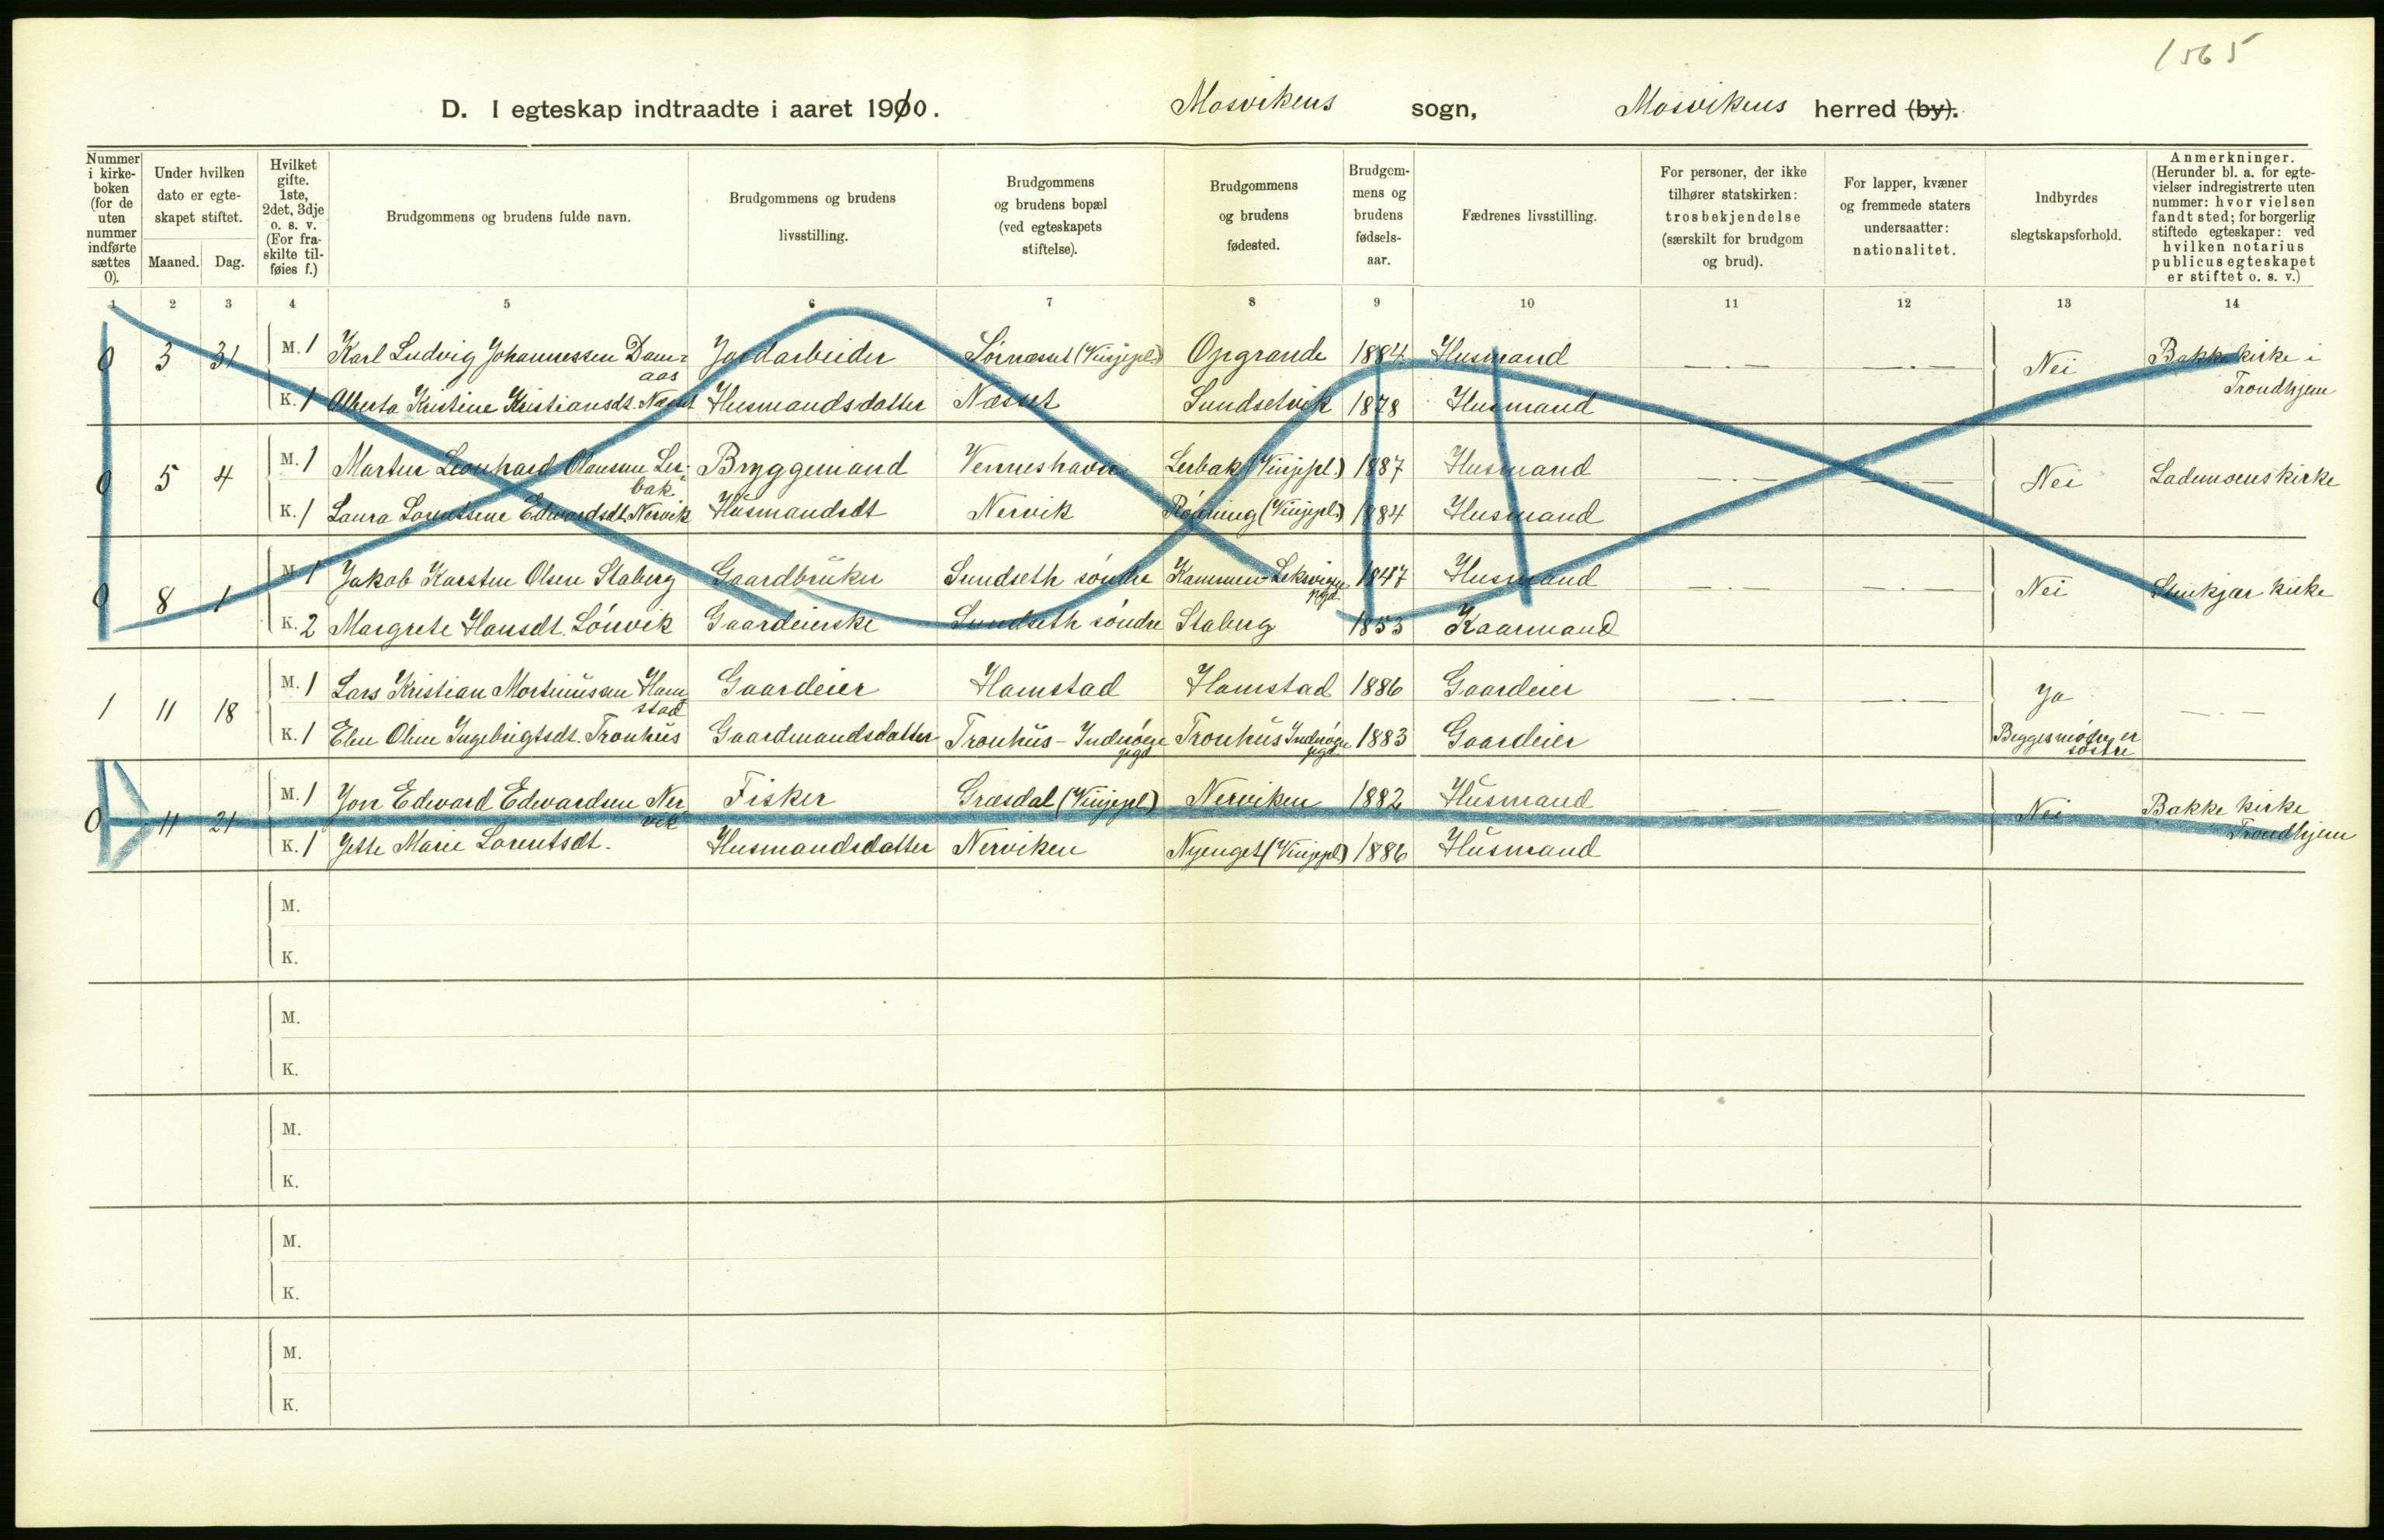 1565
D. I egteskap indtraadte i aaret 1910. Mosvikens sogn, Mosvikens herred (by).
Nummer i kirkeboken (for de uten nummer indførte sættes 0).
Under hvilken dato er egteskapet stiftet.
Maaned. Dag.
Hvilket gifte. 1ste, 2det, 3dje o. s. v. (For fraskilte tilføies f.)
Brudgommens og brudens fulde navn.
Brudgommens og brudens livsstilling.
Brudgommens og brudens bopæl (ved egteskapets stiftelse).
Brudgommens og brudens fødested.
Brudgommens og brudens fødselsaar.
Fædrenes livsstilling.
For personer, der ikke tilhører statskirken: trosbekjendelse (særskilt for brudgom og brud).
For lapper, kvæner og fremmede staters undersaatter: nationalitet.
Indbyrdes slegtskapsforhold.
Anmerkninger. (Herunder bl. a. for egtevielser indregistrerte uten nummer: hvor vielsen fandt sted; for borgerlig stiftede egteskaper: ved hvilken notarius publicus egteskapet er stiftet o. s. v.)
1 2 3 4 5 6 7 8 9 10 11 12 13 14
0 3 31 M. 1 Karl Ludvig Johannessen Damaas Jordarbeider Sörnæsset (Vinjepl.) Opgrande 1884 Husmand — . — — . — Nei Bakke kirke i Trondhjem
K. 1 Alberta Kristine Kristiansdt. Næsset Husmandsdatter Næsset Sundsetvik 1878 Husmand
0 5 4 M. 1 Martin Leonhard Olausen Lerbak Bryggemand Venneshavn Lerbak (Vinjepl.) 1887 Husmand — . — — . — Nei Lademoens kirke
K. 1 Laura Lorentsene Edwardsdt. Nervik Husmandsdt Nervik Rönning (Vinjepl.) 1884 Husmand
0 8 1 M. 1 Jakob Karsten Olsen Staberg Gaardbruker Sundseth söndre Kammen Leksviken pgd. 1847 Husmand — . — — . — Nei Stenkjær kirke
K. 2 Margrete Hansdt. Lönvik Gaardeierske Sundseth söndre Staberg 1853 Kaarmand
1 11 18 M. 1 Lars Kristian Mortinussen Hamstad Gaardeier Hamstad Hamstad 1886 Gaardeier — . — — . — Ja — . —
K. 1 Elen Oline Ingebrigtsdt. Tronhus Gaardmandsdatter Tronhus - Inderöens pgd Tronhus Inderöens pgd. 1883 Gaardeier Begges mödre er söstre
0 11 21 M. 1 Jon Edward Edwardsen Nervik Fisker Græsdal (Vinjepl) Nerviken 1882 Husmand — . — — . — Nei Bakke kirke Trondhjem
K. 1 Jette Marie Lorentsdt. Husmandsdatter Nerviken Nyenget (Vinjepl) 1886 Husmand
M.
K.
M.
K.
M.
K.
M.
K.
M.
K.